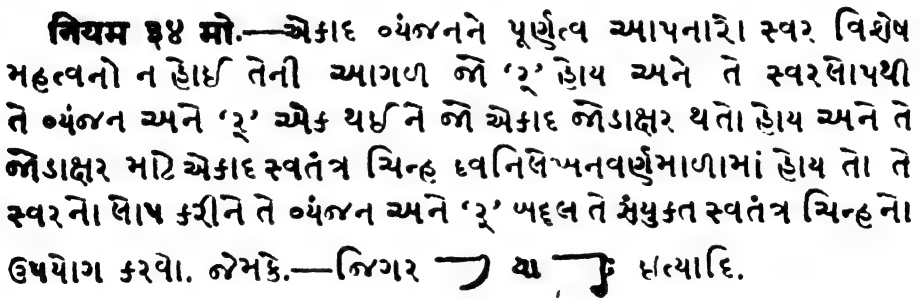 નિયમ ૩૪ મો.—એકાદ વ્યંજનને પૂર્ણત્વ આપનારો સ્વર વિશેષ
મહત્વનો ન હોઈ તેની આગળ જો ‘ર્’ હોય અને તે સ્વરલોપથી
તે વ્યંજન અને ‘ર્’ એક થઈ ને જો એકાદ જોડાક્ષર થતો હોય અને તે
જોડાક્ષર માટે એકાદ સ્વતંત્ર ચિન્હ ધ્વનિલેખનવર્ણમાળામાં હોય તો તે
સ્વરનો લોપ કરીને તે વ્યંજન અને ‘ર્’ બદ્દલ તે સંયુક્ત સ્વતંત્ર ચિન્હનો
ઉપયોગ કરવો. જેમકે.—જિગર યા ઇત્યાદિ.